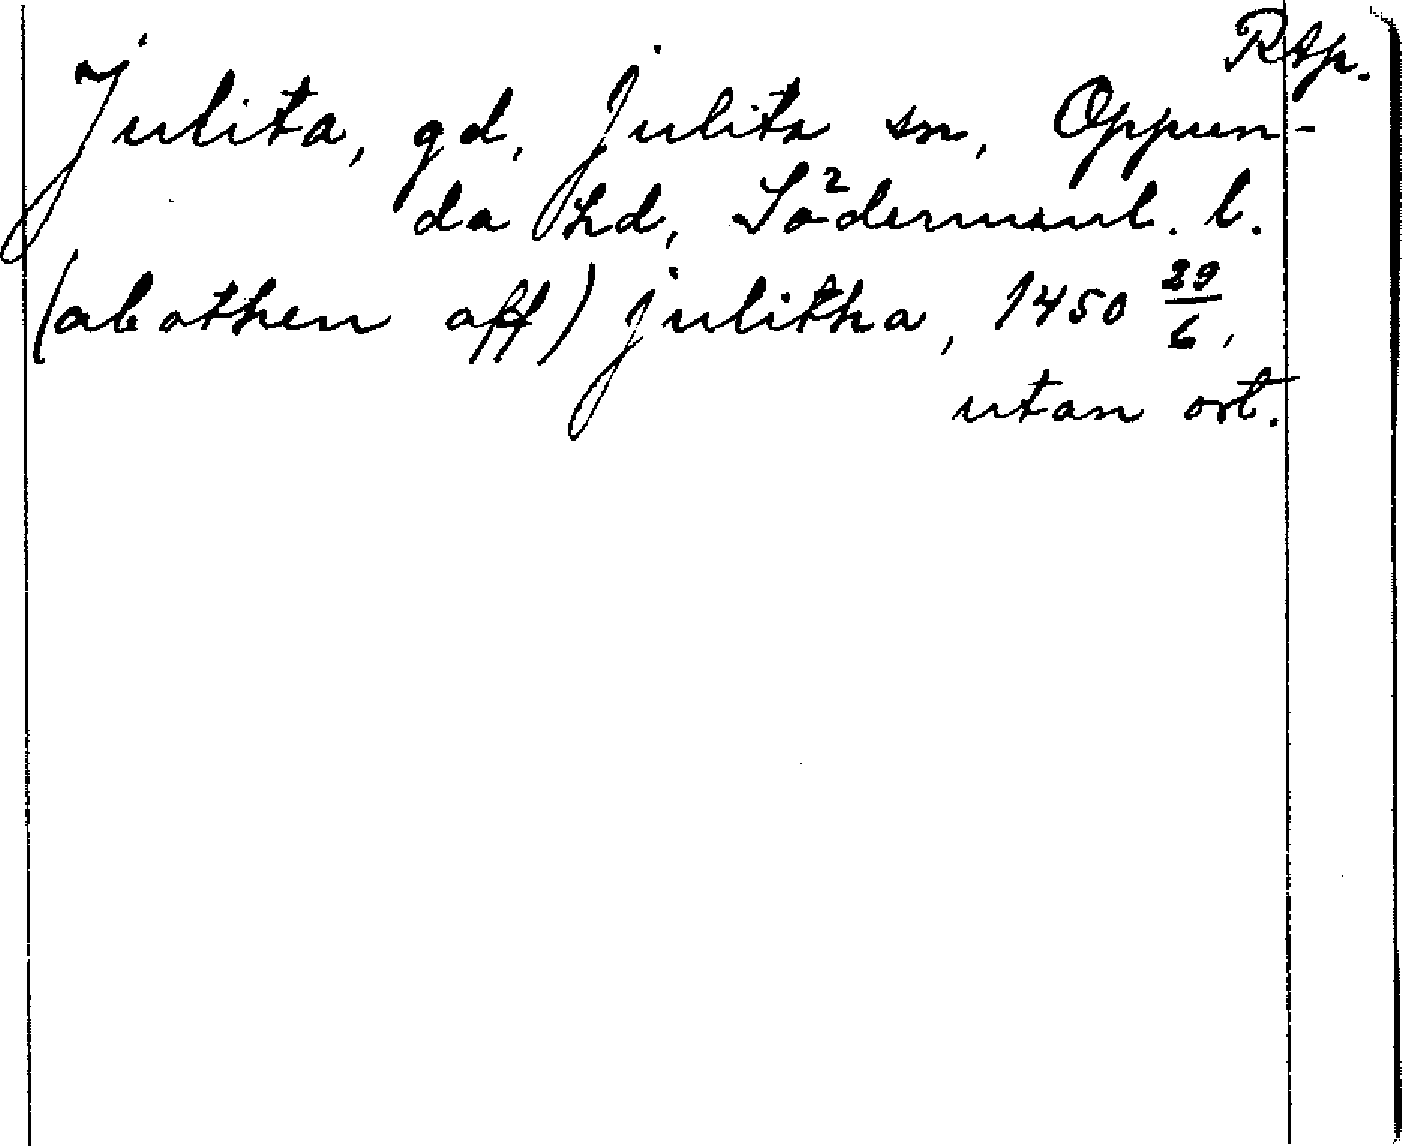 RAp.
Julita, gd, Julita sn, Oppun-
da hd, Södermanl. l.
(abothen aff) julitha, 1450 29/6,
utan ort.